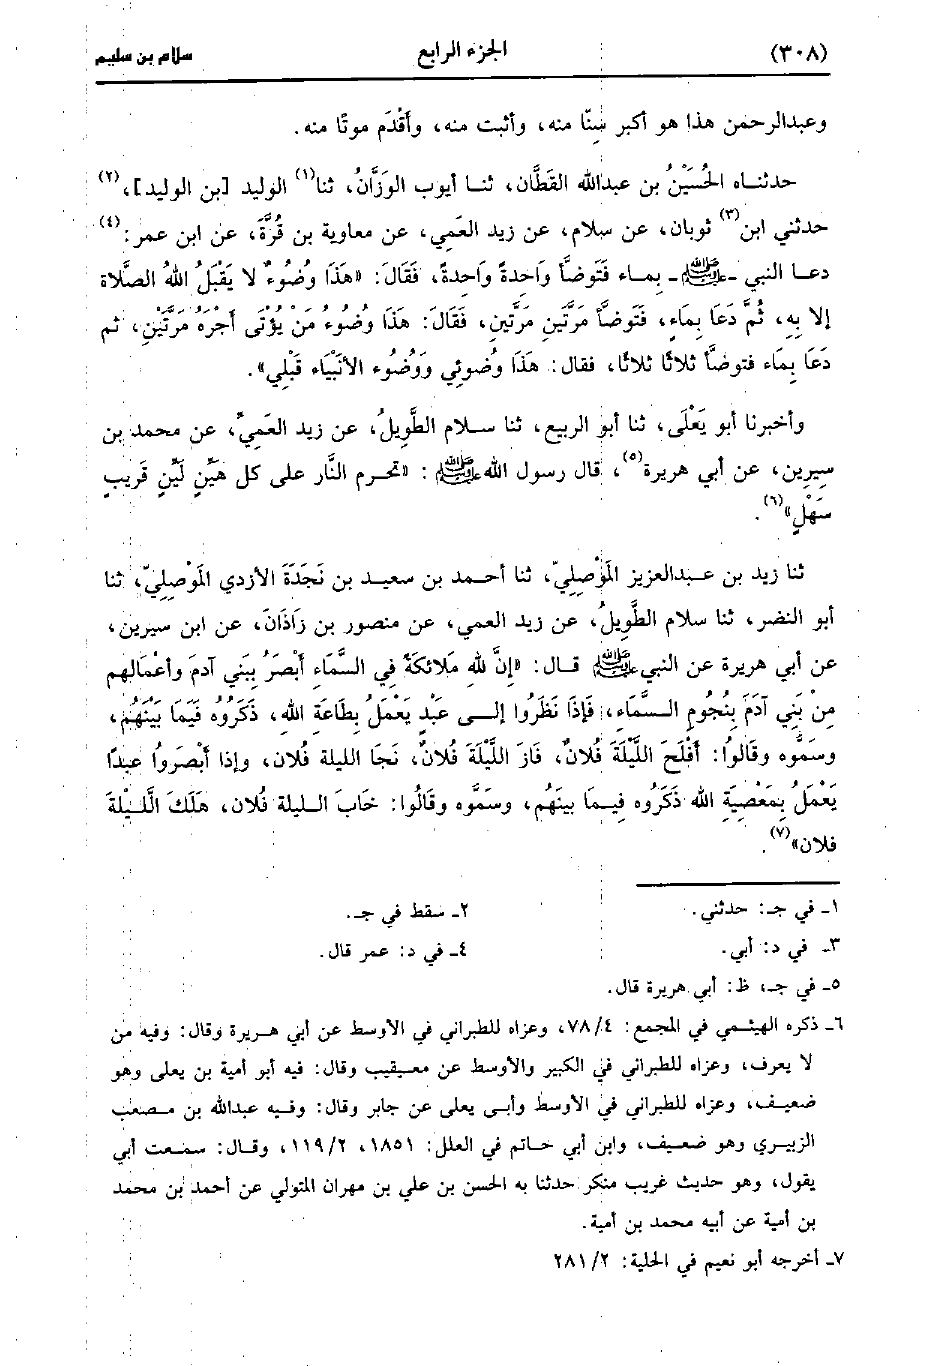 (٣٠٨) الجزء الرابع سلام بن سليم
وعبدالرحمن هذا هو أكبر سِنّا منه، وأثبت منه، وأَقْدَم موتًا منه.
حدثنـاه الحُسَيْنُ بن عبدالله القَطَّان، ثنـا أيوب الوَزَّانُ، ثنا(١) الوليد [بن الوليد]،(٢)
حدثني ابن(٣) ثوبان، عن سلام، عن زيد العَمي، عن معاوية بن قُرَّةَ، عن ابن عمر:(٤)
دعـا النبي -ﷺ- بمـاء فَتَوضَّأ وَاحدةً وَاحدةً، فَقَالَ: «هَذَا وضُوءٌ لا يَقْبَلُ اللهُ الصَّلاة
إلا بِهِ، ثُمَّ دَعَا بِمَاءٍ، فَتَوضَّأ مَرَّتَينِ مَرَّتَينِ، فَقَالَ: هَذَا وضُوءُ مَنْ يُؤْتَى أجْرَهُ مَرَّتَيْنِ، ثم
دَعَا بِمَاء فتوضَّأ ثلاثًا ثلاثًا، فقال: هَذَا وضُوئي وَوضُوء الأنْبِيَاء قَبْلِي».
وأخبرنا أبو يَعْلَى، ثنا أبو الربيع، ثنا سـلام الطَّوِيلُ، عن زيد العَميِّ، عن محمد بن
سِيرِين، عن أبي هريرة(٥)، قال رسول الله ﷺ: «تحـرم النَّار على كل هَيِّنٍ لَيِّنٍ قَريبٍ
سَهْلٍ»(٦).
ثنا زيد بن عـبدالعزيز المَوْصِليّ، ثنا أحـمد بن سعيـد بن نَجَدَةَ الأزدي المَوْصِليّ، ثنا
أبو النضر، ثنا سلام الطَّوِيلُ، عن زيد العمي، عن منصور بن زَاذَانَ، عن ابن سيرين،
عن أبي هريرة عن النبي ﷺ قـال: «إنَّ للهِ مَلائكَةً فِي السَّمَاءِ أَبْصَرُ بِبَني آدمَ وأعْمَالِهِم
مِنْ بَنِي آدَمَ بِنُجُومِ السَّمَاءِ، فَإذَا نَظَرُوا إلـى عَبْدٍ يَعْمَلُ بِطَاعَةِ اللهِ، ذَكَرُوه فيَمَا بَيْنَهُم،
وسَمُّوه وقَالوُا: أَفْلَحَ اللَّيْلَةَ فُلانٌ، فَازَ اللَّيْلَةَ فُلانٌ، نَجَا الليلة فُلان، وإذا أَبْصَرُوا عبدًا
يَعْمَلُ بِمَعْصِيَةِ الله ذَكَرُوه فيـمَا بينَهُم، وسَمَّوه وقَالُوا: خَابَ الـليلة فُلان، هَلَكَ اللَّيْلَةَ
فلان»(٧).
١ـ في جـ: حدثني. ٢ـ سقط في جـ.
٣ـ في د: أبي. ٤ـ في د: عمر قال.
٥ـ في جـ، ظ: أبي هريرة قال.
٦ـ ذكره الهيثـمي في المجمع: ٧٨/٤، وعزاه للطبراني في الأوسط عن أبي هـريرة وقال: وفيه من
لا يعرف، وعزاه للطبراني في الكبير والأوسط عن معـيقيب وقال: فيه أبو أمية بن يعلى وهو
ضعيـف، وعزاه للطبراني في الأوسط وأبـى يعلى عن جابر وقال: وفـيه عبدالله بن مـصعب
الزبيـري وهو ضعيـف، وابن أبي حـاتم في العلل: ١٨٥١، ١١٩/٢، وقـال: سمـعت أبي
يقول، وهو حديث غريب منكر حدثنا به الحسن بن علي بن مهران المتولي عن أحمد بن محمد
بن أمية عن أبيه محمد بن أمية.
٧ـ أخرجه أبو نعيم في الحلية: ٢٨١/٢